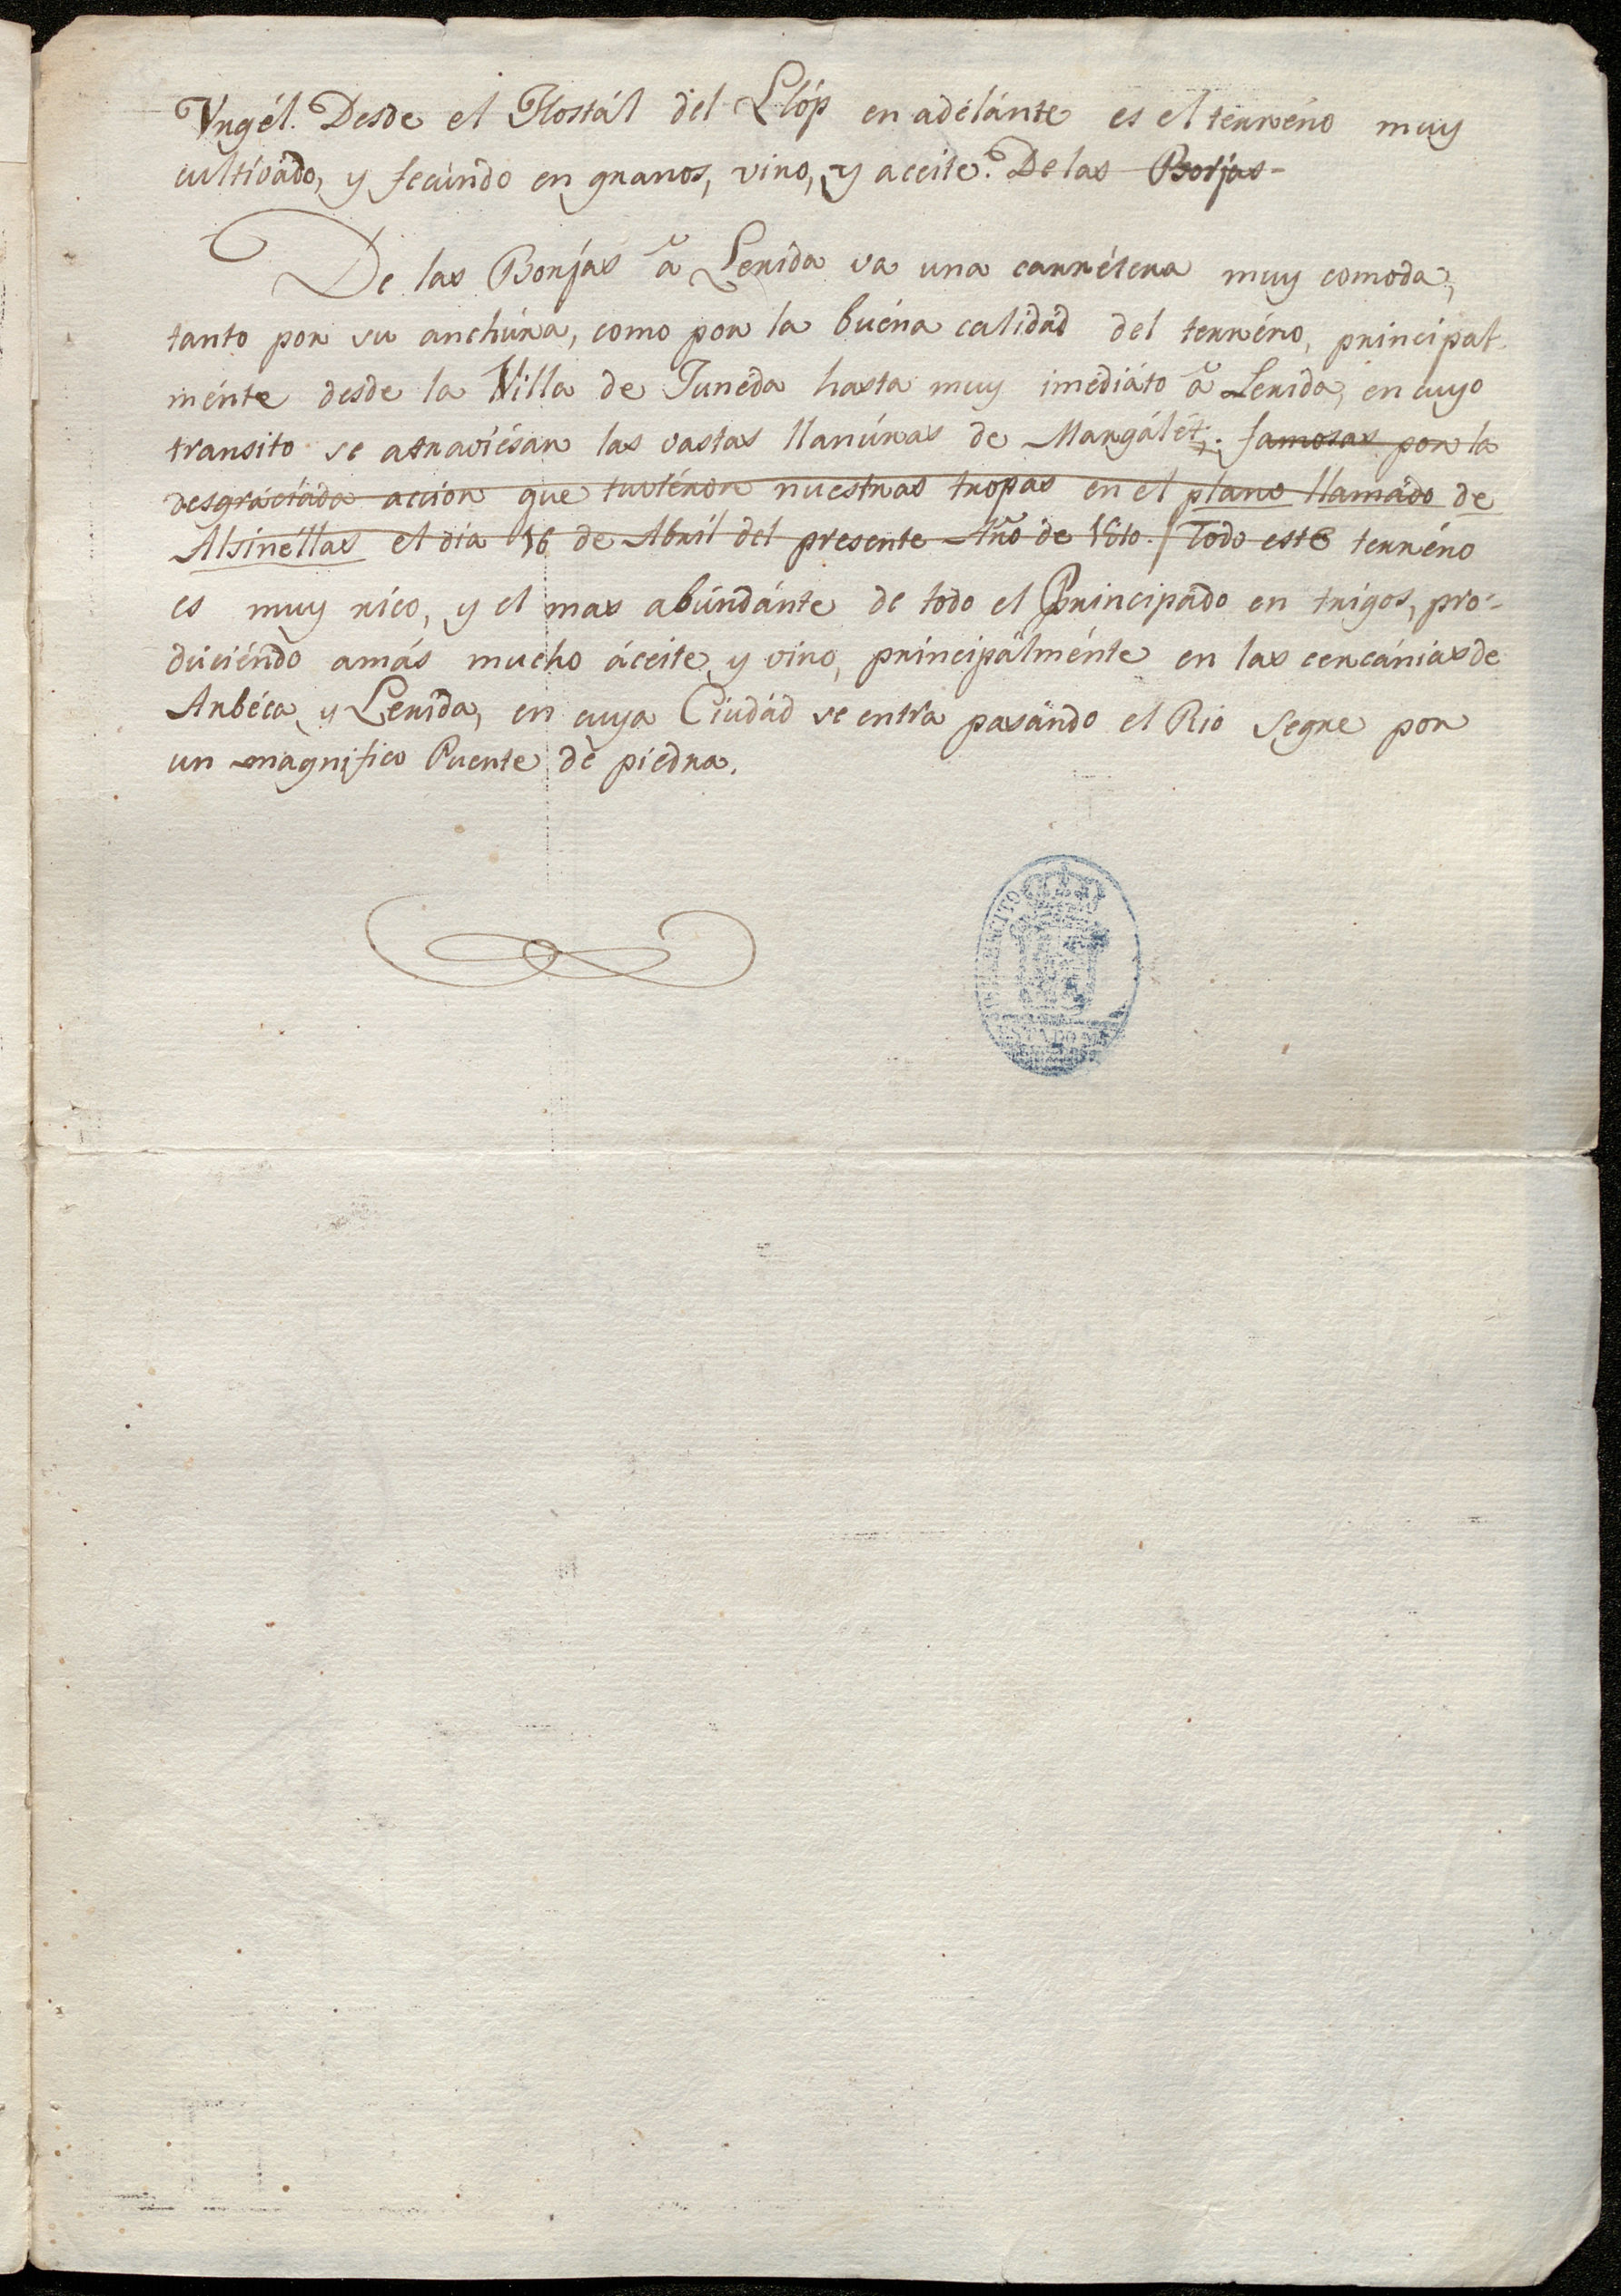 Urgél. Desde el Hostál del Llóp en adelánte es el terréno muy
cultivádo, y fecúndo en granos, vino, y aceite. De las Borjas-
De las Borjas à Lerida va una carrétera muy comoda,
tanto por su anchúra, como por la buéna calidád del terréno, principal-
ménte desde la Villa de Junéda hasta muy imediáto à Lerida, en cuyo
transito se atraviésan las vastas llanúras de Margálét, famosas por la
desgráciáda accion que tuviéron nuestras tropas en el plano llamádo de
Alsinéllas el dia 16 de Abril del presente Año de 1810. Todo este terréno
es muy rico, y el mas abúndánte de todo el Principádo en trigos, pro-
duciéndo amás mucho áceite, y vino, principálménte en las cercánias de
Arbéca, y Lerida, en cuya Ciudád se entra pasándo el Rio Segre por
un magnifico Puente de piedra.